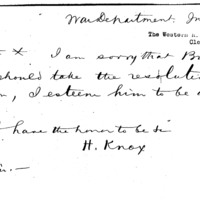 War Department. In
The Western R.
Cle
x. I am sorry that B
should take the resolute
I esteem him to be a
have the honor to be
H. Knox